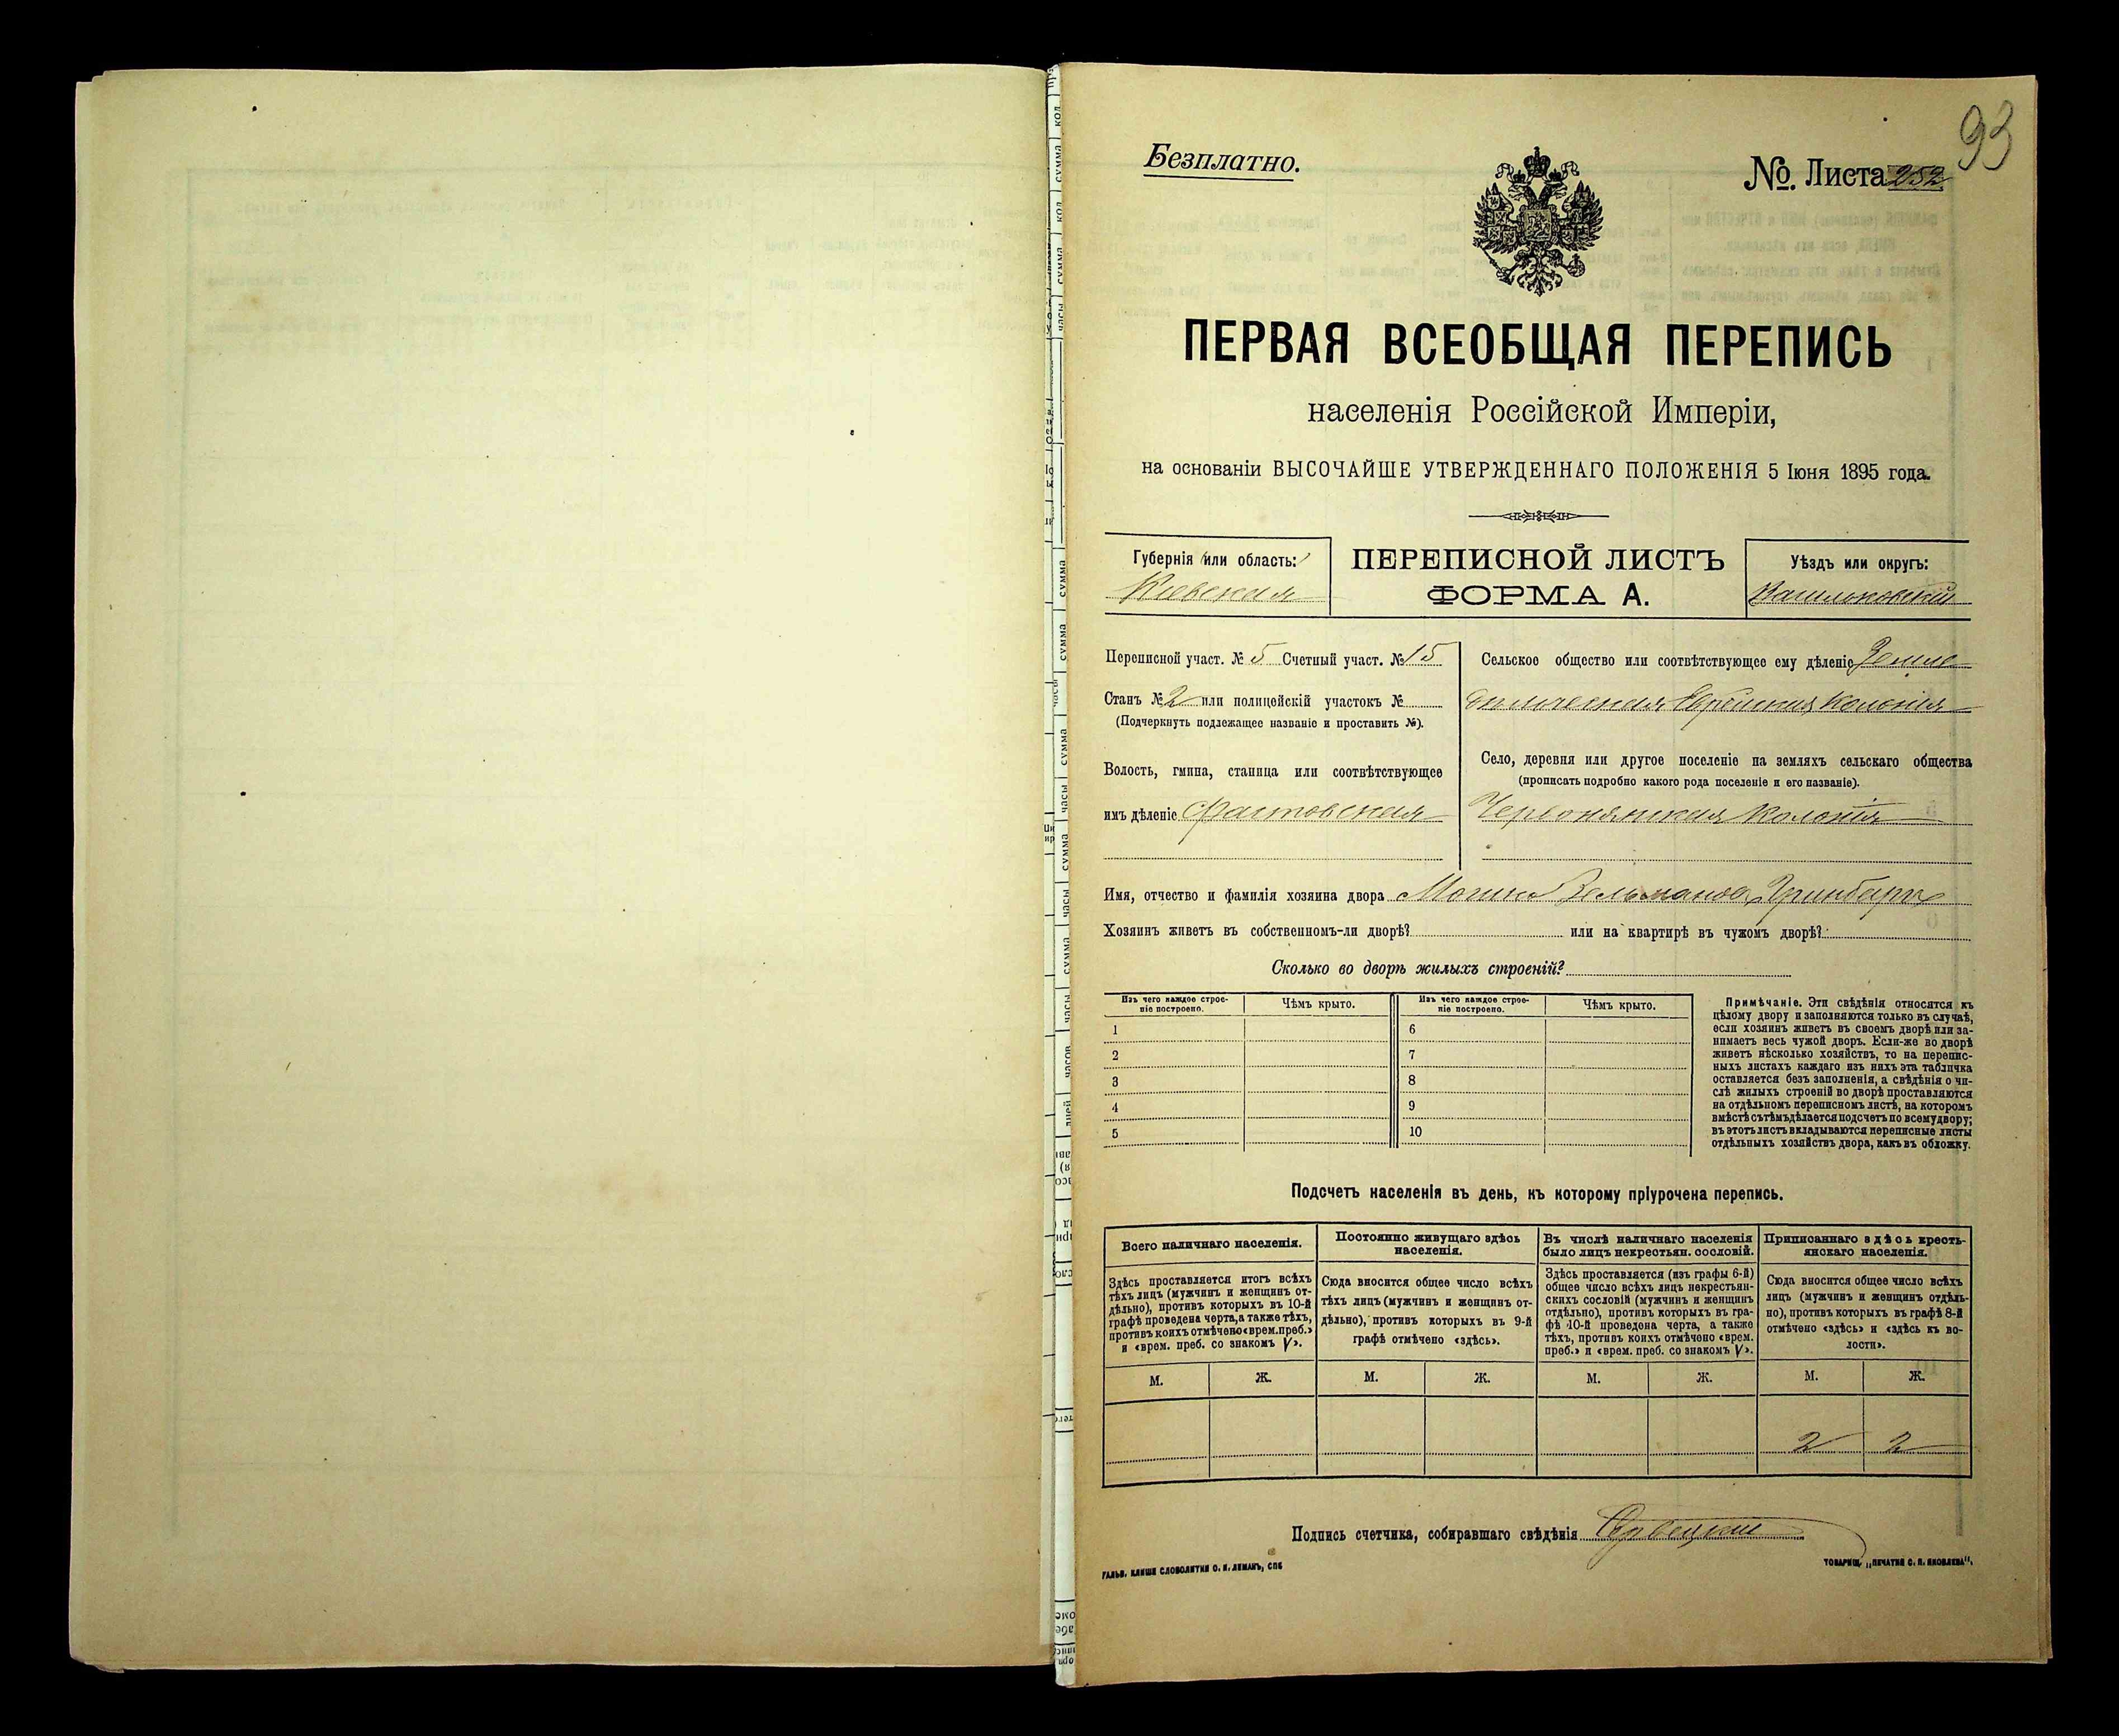 93
Безплатно.
№. Листа 252
ПЕРВАЯ ВСЕОБЩАЯ ПЕРЕПИСЬ
населенія Россійской Имперіи,
на основаніи ВЫСОЧАЙШЕ УТВЕРЖДЕННАГО ПОЛОЖЕНІЯ 5 Іюня 1895 года.
Губернія или область:
Кіевская
ПЕРЕПИСНОЙ ЛИСТЪ
ФОРМА А.
Уѣздъ или округъ:
Васильковскій
Переписной участ. № 5 Счетный участ. № 15
Станъ № 2 или полицейскій участокъ №
(Подчеркнуть подлежащее названіе и проставить №).
Волость, гмина, станица или соотвѣтствующее
имъ дѣленіе Фастовская
Сельское общество или соотвѣтствующее ему дѣленіе Земле
дѣльческая Еврейская Колонія
Село, деревня или другое поселеніе на земляхъ сельскаго общества
(прописать подробно какого рода поселеніе и его названіе).
Червонянская Колонія
Имя, отчество и фамилія хозяина двора Мошко Зельманов Гринберг
Хозяинъ живетъ въ собственномъ-ли дворѣ? или на квартирѣ въ чужомъ дворѣ?
Сколько во дворѣ жилыхъ строеній?
Изъ чего каждое строе-
ніе построено.
Чѣмъ крыто.
Изъ чего каждое строе-
ніе построено.
Чѣмъ крыто.
1 6
2 7
3 8
4 9
5 10
Примѣчаніе. Эти свѣдѣнія относятся къ
цѣлому двору и заполняются только въ случаѣ,
если хозяинъ живетъ въ своемъ дворѣ или за-
нимаетъ весь чужой дворъ. Если-же во дворѣ
живетъ нѣсколько хозяйствъ, то на перепис-
ныхъ листахъ каждаго изъ нихъ эта табличка
оставляется безъ заполненія, а свѣдѣнія о чи-
слѣ жилыхъ строеній во дворѣ проставляются
на отдѣльномъ переписномъ листѣ, на которомъ
вмѣстѣ съ тѣмъ дѣлается подсчетъ по всему двору;
въ этотъ листъ вкладываются переписные листы
отдѣльныхъ хозяйствъ двора, какъ въ обложку.
Подсчетъ населенія въ день, къ которому пріурочена перепись.
Всего наличнаго населенія.
Здѣсь проставляется итогъ всѣхъ
тѣхъ лицъ (мужчинъ и женщинъ от-
дѣльно), противъ которыхъ въ 10-й
графѣ проведена черта, а также тѣхъ,
противъ коихъ отмѣчено «врем. преб.»
и «врем. преб. со знакомъ V».
Постоянно живущаго здѣсь
населенія.
Сюда вносится общее число всѣхъ
тѣхъ лицъ (мужчинъ и женщинъ от-
дѣльно), противъ которыхъ въ 9-й
графѣ отмѣчено «здѣсь».
Въ числѣ наличнаго населенія
было лицъ некрестьян. сословій.
Здѣсь проставляется (изъ графы 6-й)
общее число всѣхъ лицъ некрестьян-
скихъ сословій (мужчинъ и женщинъ
отдѣльно), противъ которыхъ въ гра-
фѣ 10-й проведена черта, а также
тѣхъ, противъ коихъ отмѣчено «врем.
преб.» и «врем. преб. со знакомъ V».
Приписаннаго здѣсь кресть-
янскаго населенія.
Сюда вносится общее число всѣхъ
лицъ (мужчинъ и женщинъ отдѣль-
но), противъ которыхъ въ графѣ 8-й
отмѣчено «здѣсь» и «здѣсь къ во-
лости».
М. Ж. М. Ж. М. Ж. М. Ж.
2 2
Подпись счетчика, собиравшаго свѣдѣнія
ГАЛЬВ. КЛИШЕ СЛОВОЛИТНИ О. И. ЛЕМАНЪ, СПБ
ТОВАРИЩ. „ПЕЧАТНЯ С. П. ЯКОВЛЕВА".